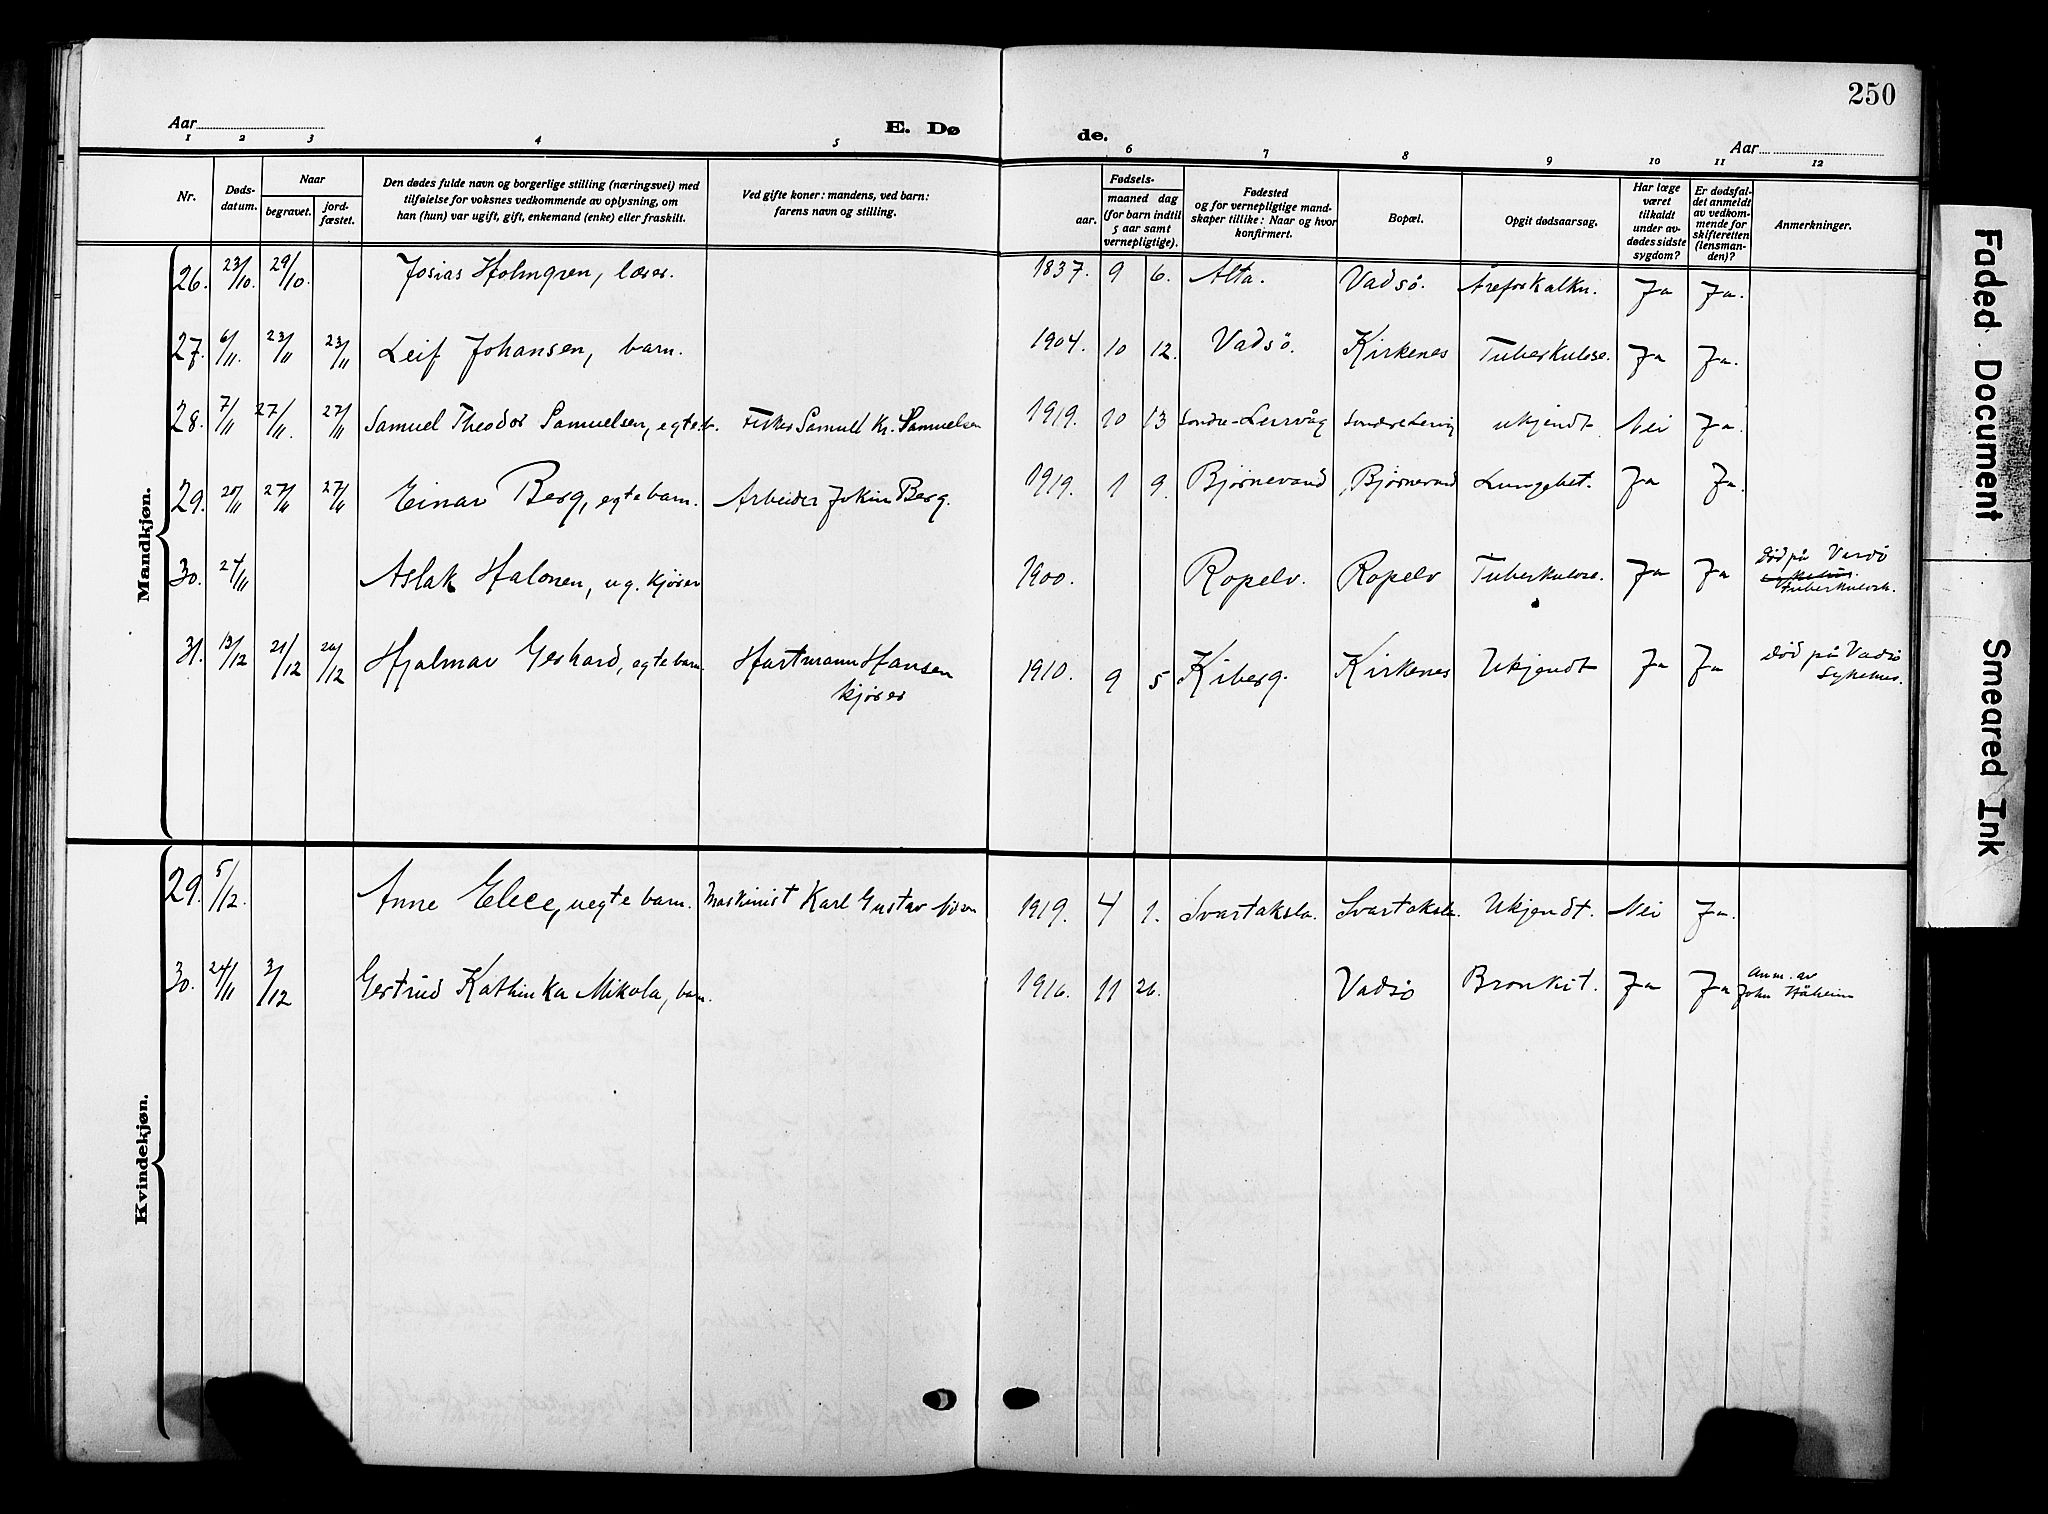 250
Aar
E. Dø
de.
Aar
1 2 3 4 5 6 7 8 9 10 11 12
Nr.
Døds-
datum.
Naar
begravet.
jord-
fæstet.
Den dødes fulde navn og borgerlige stilling (næringsvei) med
tilføielse for voksnes vedkommende av oplysning, om
han (hun) var ugift, gift, enkemand (enke) eller fraskilt.
Ved gifte koner: mandens, ved barn:
farens navn og stilling.
Fødsels-
aar.
maaned dag
(for barn indtil
5 aar samt
vernepligtige).
Fødested
og for vernepligtige mand-
skaper tillike: Naar og hvor
konfirmert.
Bopæl.
Opgit dødsaarsag.
Har læge
været
tilkaldt
under av-
dødes sidste
sygdom?
Er dødsfal-
det anmeldt
av vedkom-
mende for
skifteretten
(lensman-
den)?
Anmerkninger.
Mandkjøn.
26. 23/10. 29/10. Josias Holmgren, læser. 1837. 9 6. Alta. Vadsø. Åreforkalkn. Ja Ja.
27. 6/11. 23/11 23/11 Leif Johansen, barn. 1904. 10 12. Vadsö. Kirkenes Tuberkulose. Ja Ja.
28. 7/11 27/11. 27/11 Samuel Theodor Samuelsen, egte b. Fisker Samuel Kr. Samuelsen 1919. 10 13 Søndre-Leirvåg ukjendt Nei Ja.
29. 20/11 27/11 27/11 Einar Berg, egte barn. Arbeider Jokim Berg. 1919. 1 9. Bjørnevand Bjørnevand Lungebet. Ja Ja.
30. 27/11 Aslak Halonen, ug. kjører 1900. Ropelv. Ropelv Tuberkulose. Ja Ja død på Vardö
Tuberkulosh.
31. 13/12 21/12 20/12 Hjalmar Gerhard, egte barn. Hartmann Hansen
kjører
1910. 9 5 Kiberg. Kirkenes Ukjendt Ja Ja død på Vadsø
Sykehus.
Kvindekjøn.
29. 5/12. Anne Elece, uegte barn. Maskinist Karl Gustav 1919. 4 1. Svartaksla. Svartaksla. Ukjendt. Nei Ja.
30. 24/11 3/12 Gertrud Kathinka Mikola, barn. 1916. 11 26. Vadsø Bronkit. Ja Ja Anm. av
John Håheim
Faded Document
Smeared Ink